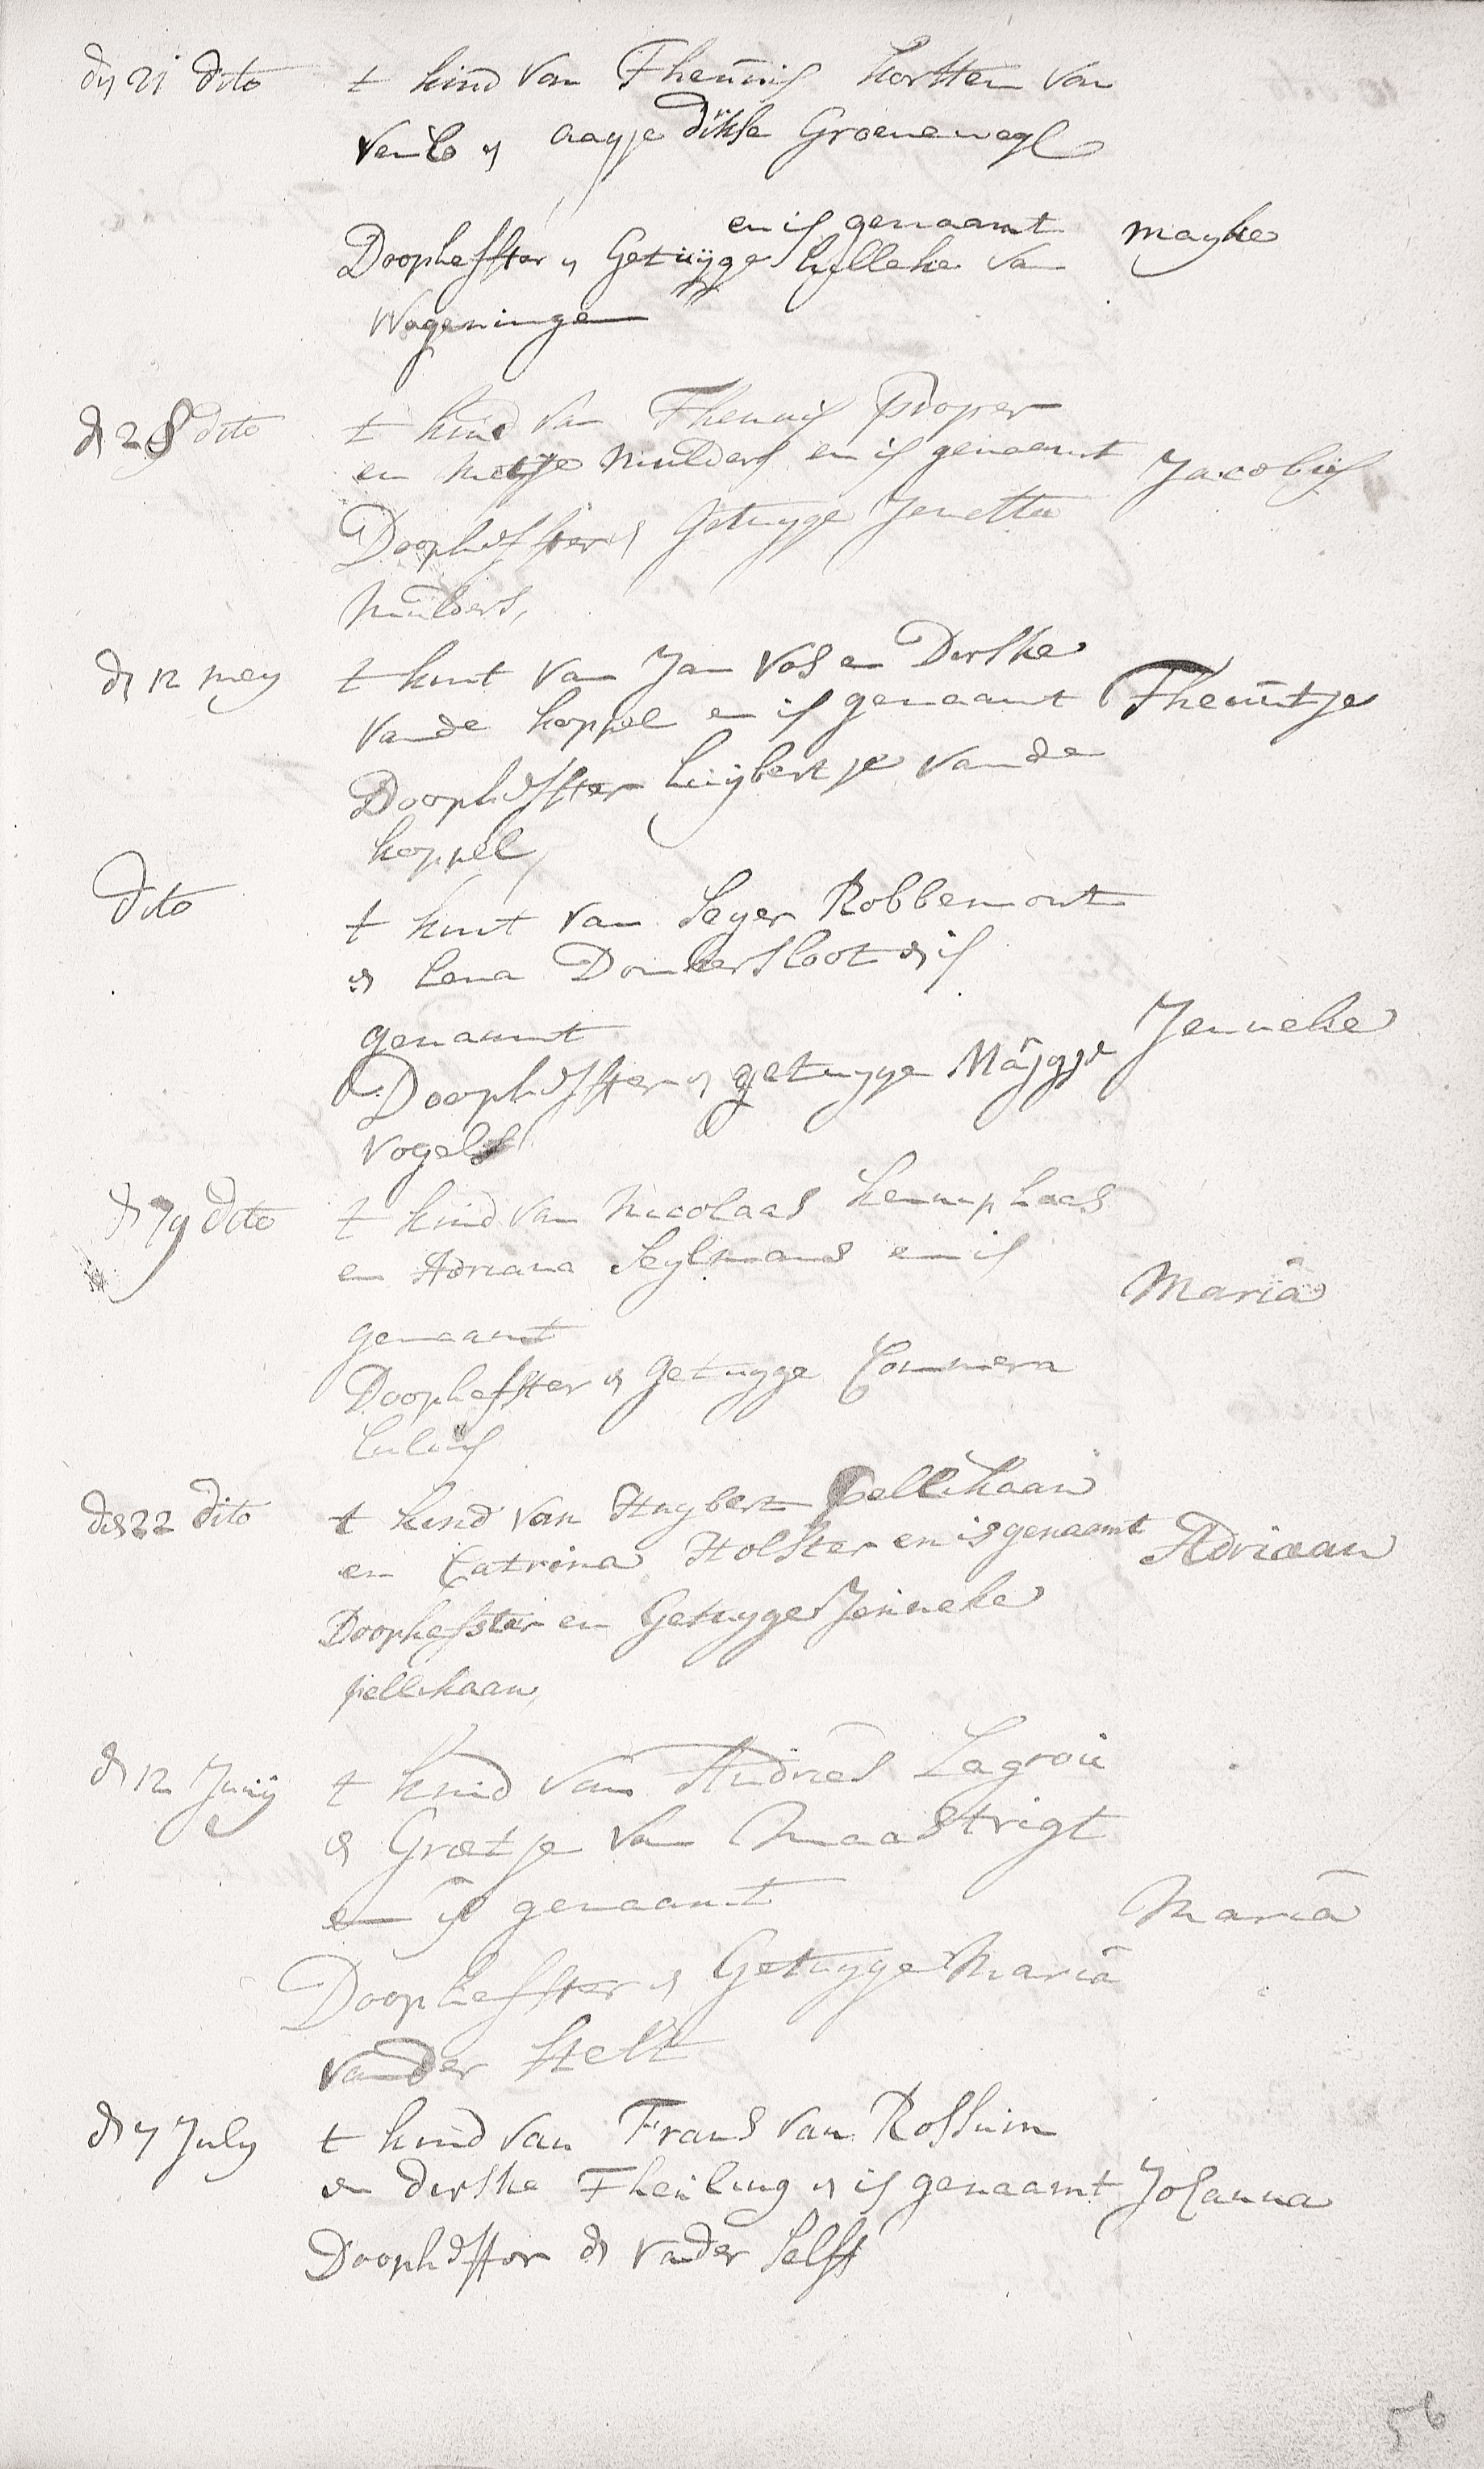 dn 21 dito t kind van Theunis korsten van
Venlo en aagje dikse Groenewegh
en is genaamt mayke
Doophefster en Getuÿge hilleke van
Wageningen
dn 28 dito t kind van Theunis Proper
en metje mulders en is genaamt Jacobus
Doophefster en Getuyge Jenetta
mulders,
dn 12 mey t kint van Jan Vos en Dirske
vande koppel en is genaamt Theuntje
Doophefster huijbertje vande
koppel,
dito t kint van Seger Robbemont
en Lena Donkersloot en is
genaamt Jenneke
Doophefster en getuyge Maygje
Vogels
dn 19 dito t kind van Nicolaas kemphaas
en Adriana Seylmans en is
genaamt Maria
Doophefster en Getuyge Commera
den 22 dito t kind van Huybert pellikaan
en Catrina Holster en is genaamt Adriaan
Doophefster en Getuyge Jenneke
pellikaan,
dn 12 Junij t kind van Andries Lagroie
en Grietje van Maastrigt
en is genaamt Maria
Doophefster en Getuyge Maria
vander Stelt
dn 7 July t kind van Frans van Rossum
en dirske Theuling en is genaamt Johanna
Doophefster de vader selfs
56